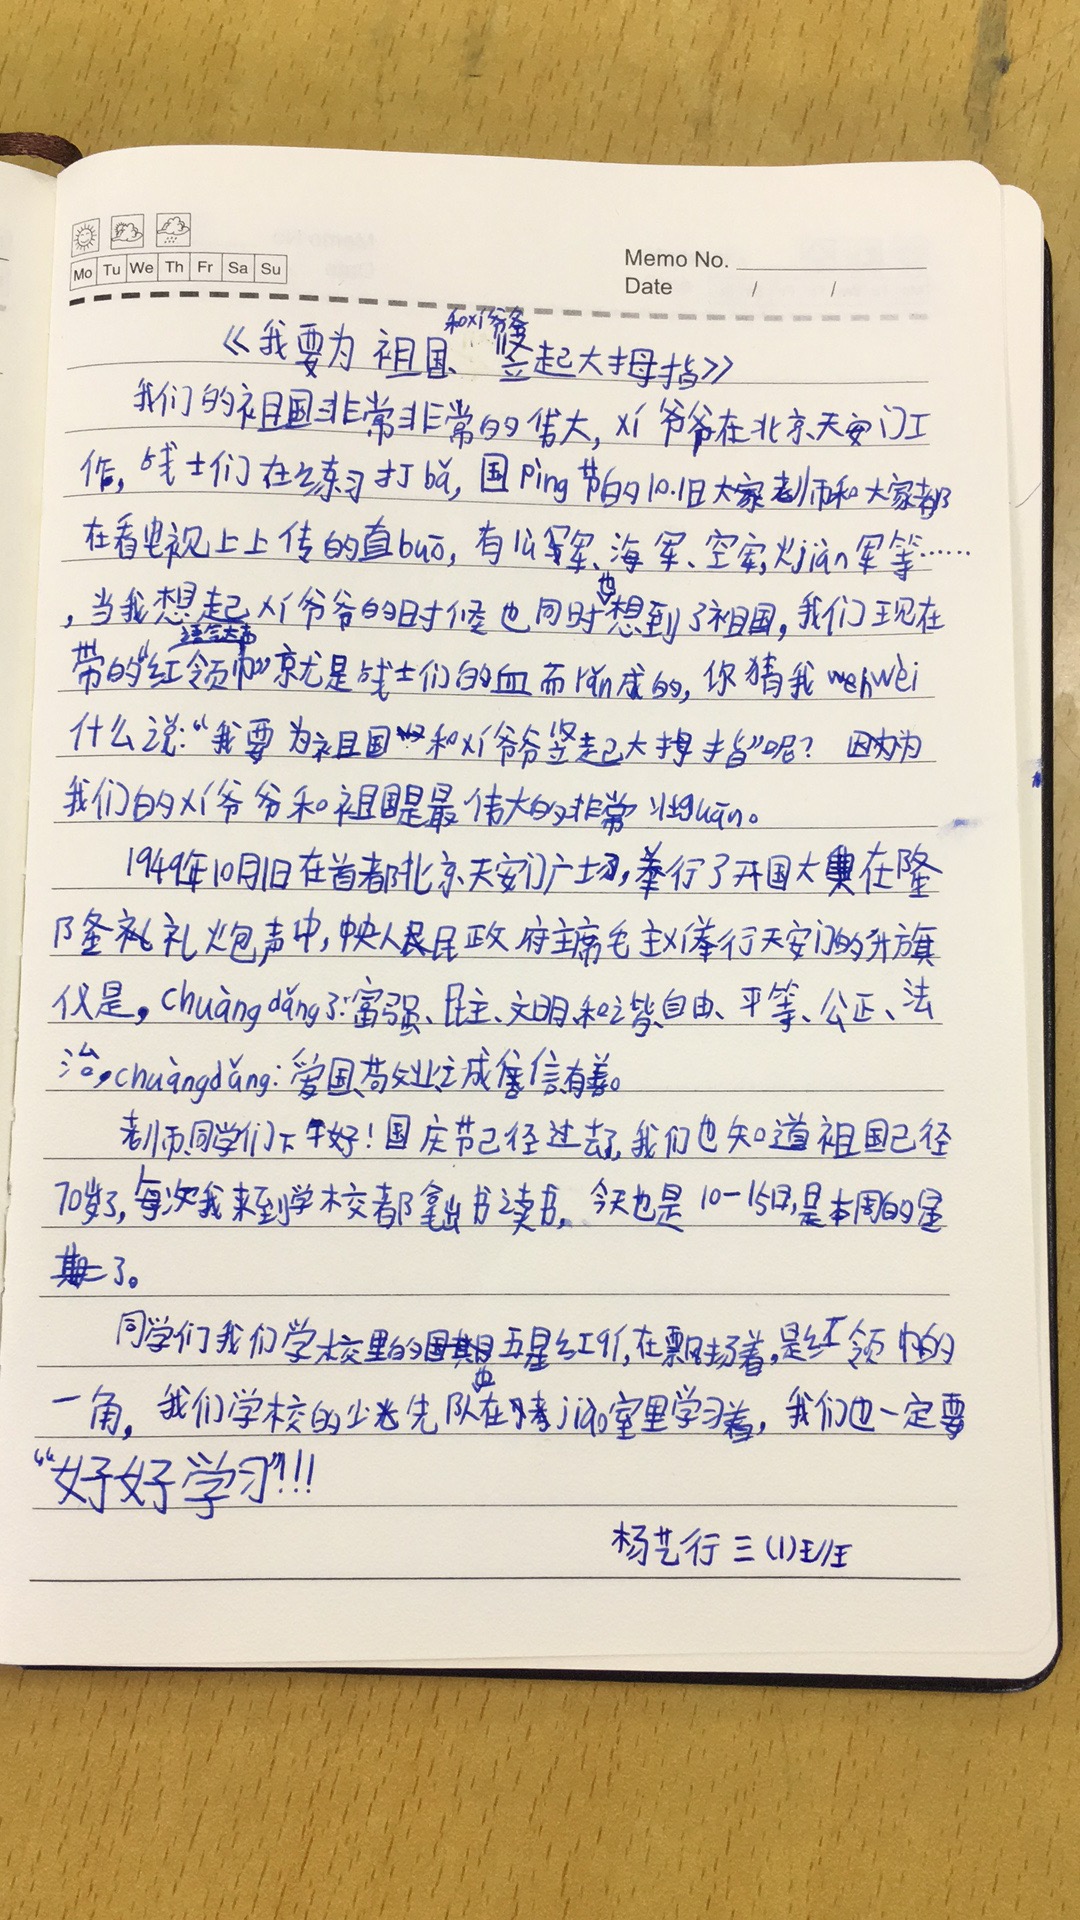 Mo Tu We Th Fr Sa Su
Memo No.
Date / /
和xi爷爷
《我要为祖国、竖起大拇指》
我们的祖国非常非常的伟大，xi爷爷在北京天安门工
作，战士们在练习打bǎ，国Ping节的10.1日大家老师和大家都
在看电视上上传的直buō，有公军、海军、空军，火jiàn军等……
，当我想起xi爷爷的时候也同时也想到了祖国，我们现在
语气大声
带的“红领巾”京尤是战士们的血而rǎn成的，你猜我wènwèi
什么说：“我要为祖国和xi爷爷竖起大拇指”呢？因为
我们的xi爷爷和祖国是最伟大的非常壮guān。
1949年10月1日在首都北京天安门广场，举行了开国大典在隆
隆礼礼炮声中，中央人民政府主席毛主xi举行天安门的升旗
仪是，chuàngdǎng了：富强、民主、文明、和谐、自由、平等、公正、法
治，chuàngdǎng：爱国、敬业、成信有善。
老师同学们下午好！国庆节已径过去了，我们也知道祖国已径
70岁了，每次我来到学校都拿出书读书，今天也是10-15日，是本周的星
期二了。
同学们我们学校里的五星红qí，在飘扬着，是红领巾的
一角，我们学校的少先队也在jiào室里学习着，我们也一定要
“好好学习”!!!
杨艺行 三(1)班